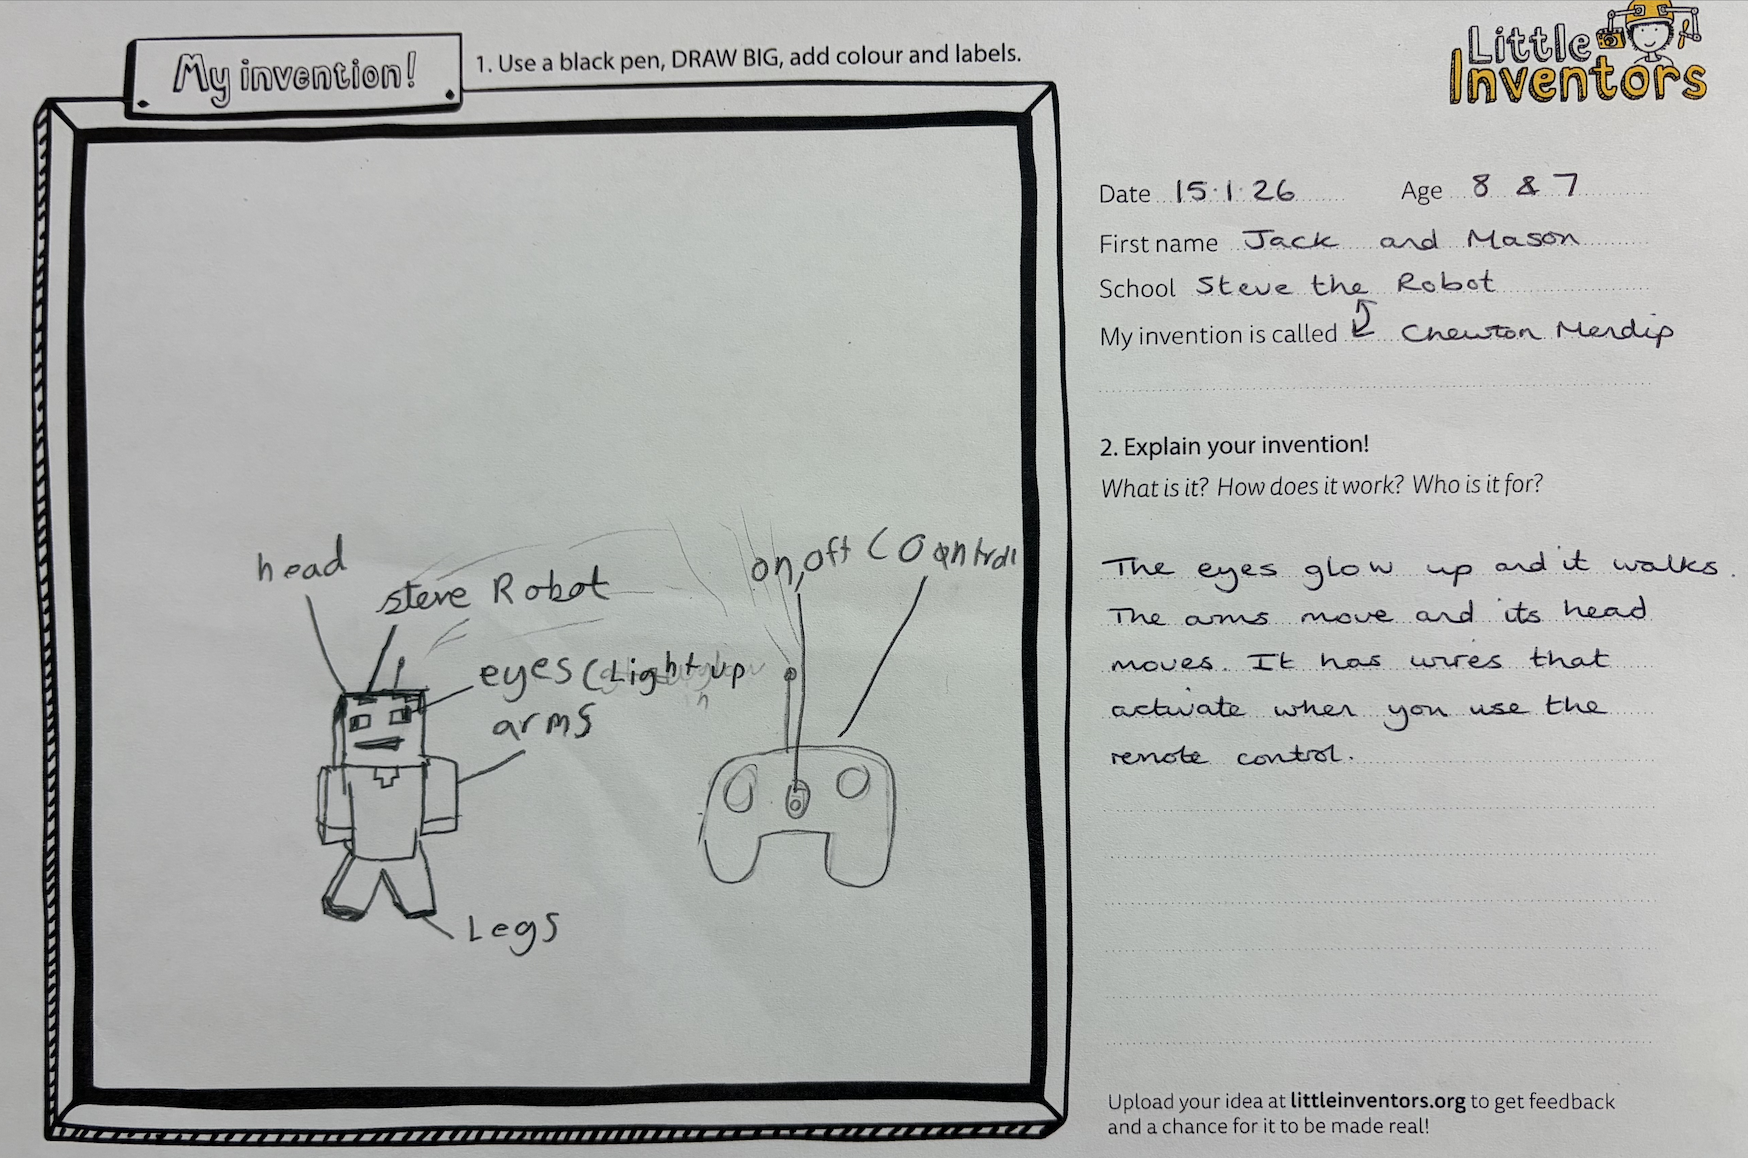 My invention!
1. Use a black pen, DRAW BIG, add colour and labels.
Little
Inventors
Date 15.1.26 Age 8 & 7
First name Jack and Mason
School Steve the Robot
My invention is called Chewton Mendip
2. Explain your invention!
What is it? How does it work? Who is it for?
The eyes glow up and it walks.
The arms move and its head
moves. It has wires that
activate when you use the
remote control.
head
steve Robot
eyes (Light up
arms
Legs
on, off
Upload your idea at littleinventors.org to get feedback
and a chance for it to be made real!